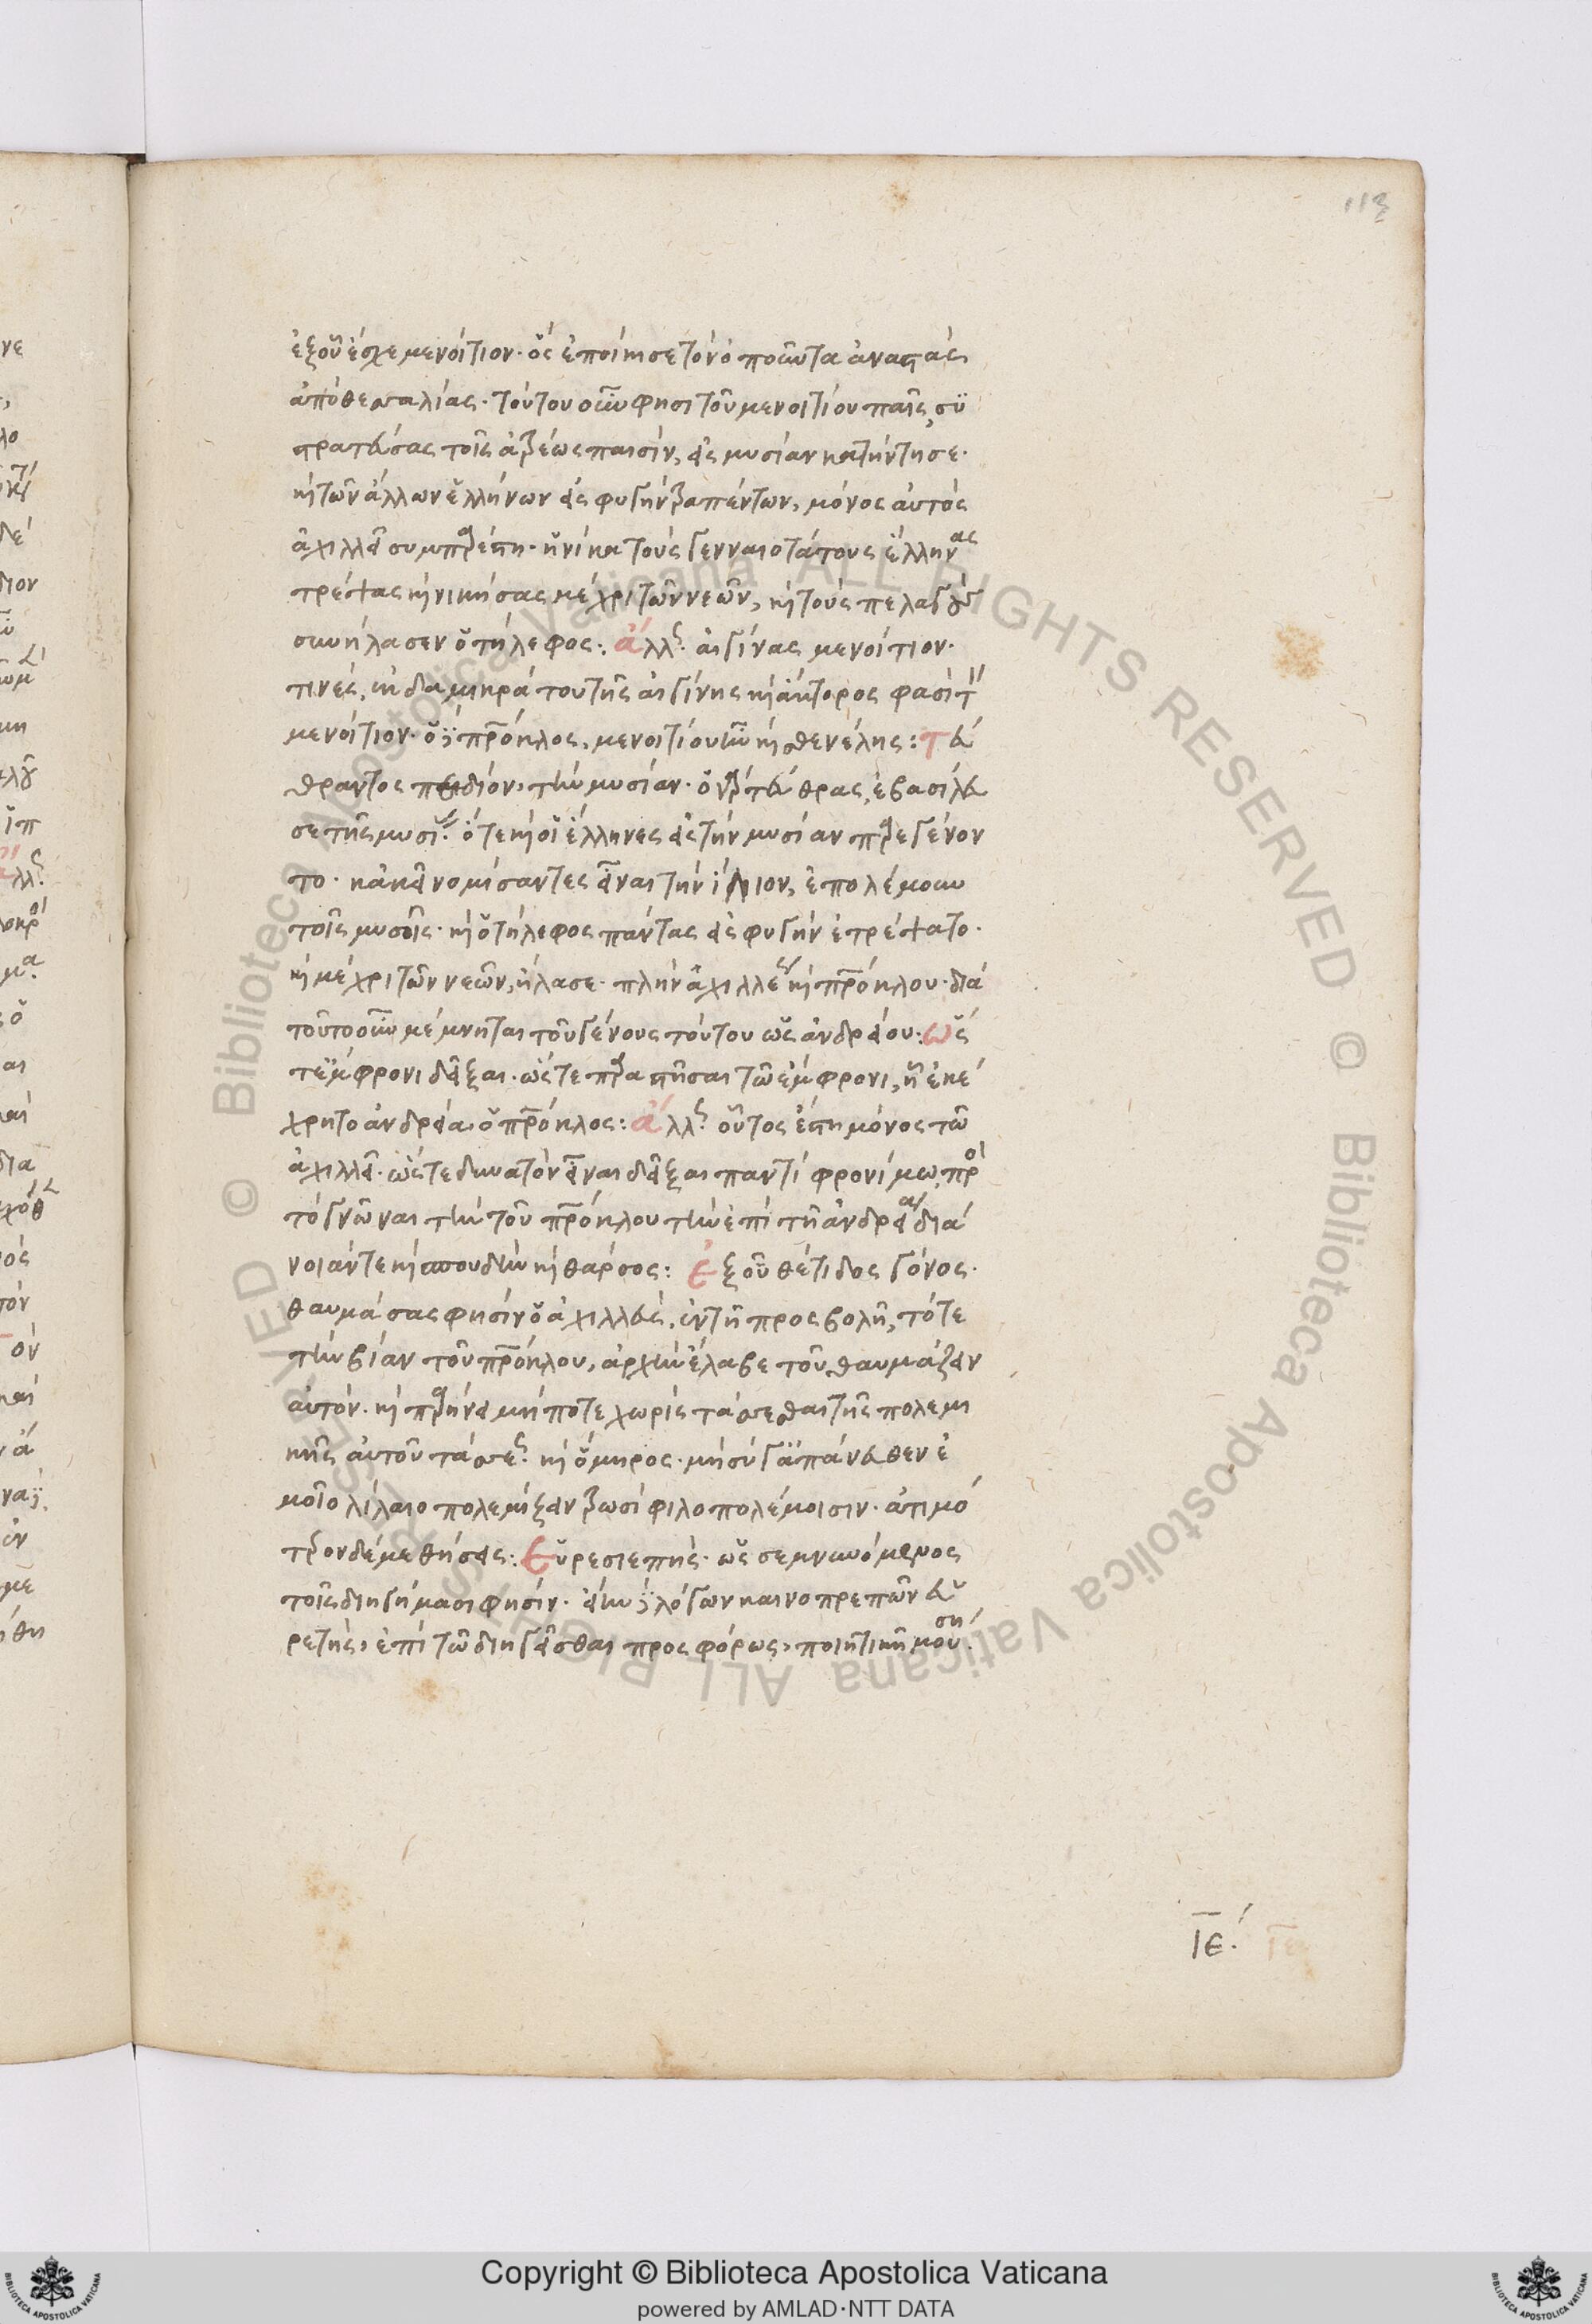 113
ἐξ οὗ ἔσχε μενοίτιον· ὃς ἐποίησε τὸν ὀποῦντα ἀναστὰς
ἀπὸ θεσσαλίας· τούτου οὖν φησὶ τοῦ μενοιτίου παῖς, συ
στρατεύσας τοῖς ἀτρέως παισὶν, εἰς μυσίαν κατήντησε·
καὶ τῶν ἄλλων ἑλλήνων εἰς φυγὴν τραπέντων, μόνος αὐτὸς
ἀχιλλεῖ συμπαρέστη· ἡνίκα τοὺς γενναιοτάτους ἕλληνας
τρέψας καὶ νικήσας μέχρι τῶν νεῶν, καὶ τοὺς πελάγους
συνήλασεν ὁ τήλεφος: ἄλλως· αἰγίνας μενοίτιον·
τινὲς, δαμοκράτου τῆς αἰγίνης καὶ ἄκτορος φασὶ τὸν
μενοίτιον· ὁ δὲ πάτροκλος, μενοιτίου ἦν καὶ σθενέλης: τεύ
θραντος πεδίον, τὴν μυσίαν· ὁ γὰρ τεύθρας, ἐβασίλευ
σε τῆς μυσίας· ὅτε καὶ οἱ ἕλληνες εἰς τὴν μυσίαν παρεγένον
το· κἀκεῖ νομίσαντες εἶναι τὴν ἴλιον, ἐπολέμουν
τοῖς μυσοῖς· καὶ ὁ τήλεφος πάντας εἰς φυγὴν ἐτρέψατο·
καὶ μέχρι τῶν νεῶν, ἤλασε· πλὴν ἀχιλλέως καὶ πατρόκλου· διὰ
τοῦτο οὖν μέμνηται τοῦ γένους τούτου ὡς ἀνδρείου: ὥς
τ' ἔμφρονι δεῖξαι· ὥστε παραστῆσαι τῷ ἔμφρονι, ᾗ ἐκέ
χρητο ἀνδρείᾳ ὁ πάτροκλος: ἄλλως· οὗτος ἔστη μόνος τῷ
ἀχιλλεῖ· ὥστε δυνατὸν εἶναι δεῖξαι παντὶ φρονίμῳ πρὸς
τὸ γνῶναι τὴν τοῦ πατρόκλου τὴν ἐπὶ τῇ ἀνδρείᾳ διά
νοιάν τε καὶ σπουδὴν καὶ θάρσος: ἐξ οὗ θέτιδος γόνος·
θαυμάσας φησὶν ὁ ἀχιλλεὺς, ἐν τῇ προσβολῇ, τότε
τὴν βίαν τοῦ πατρόκλου, ἀρχὴν ἔλαβε τοῦ θαυμάζειν
αὐτόν· καὶ παρῄνει μήποτε χωρὶς τάσσεσθαι τῆς πολεμι
κῆς αὐτοῦ τάξεως· καὶ ὅμηρος· μὴ σύ γ' ἀπάνευθεν ἐ
μοῖο λιλαίο πολεμίζειν τρωσὶ φιλοπολέμοισιν· ἀτιμό
τρον δέ με θήσεις: εὑρεσιεπής· ὡς σεμνυνόμενος
τοῖς διηγήμασι φησίν· εἴην δὲ λόγων καινοπρεπῶν εὑ
ρετὴς, ἐπὶ τῷ διηγεῖσθαι προσφόρως, ποιητικῇ μούσῃ·
ιε΄